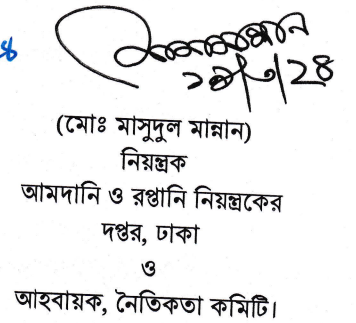 (মোঃ মাসুদুল মান্নান)
নিয়ন্ত্রক
আমদানি ও রপ্তানি নিয়ন্ত্রকের
দপ্তর, ঢাকা
ও
আহবায়ক, নৈতিকতা কমিটি।